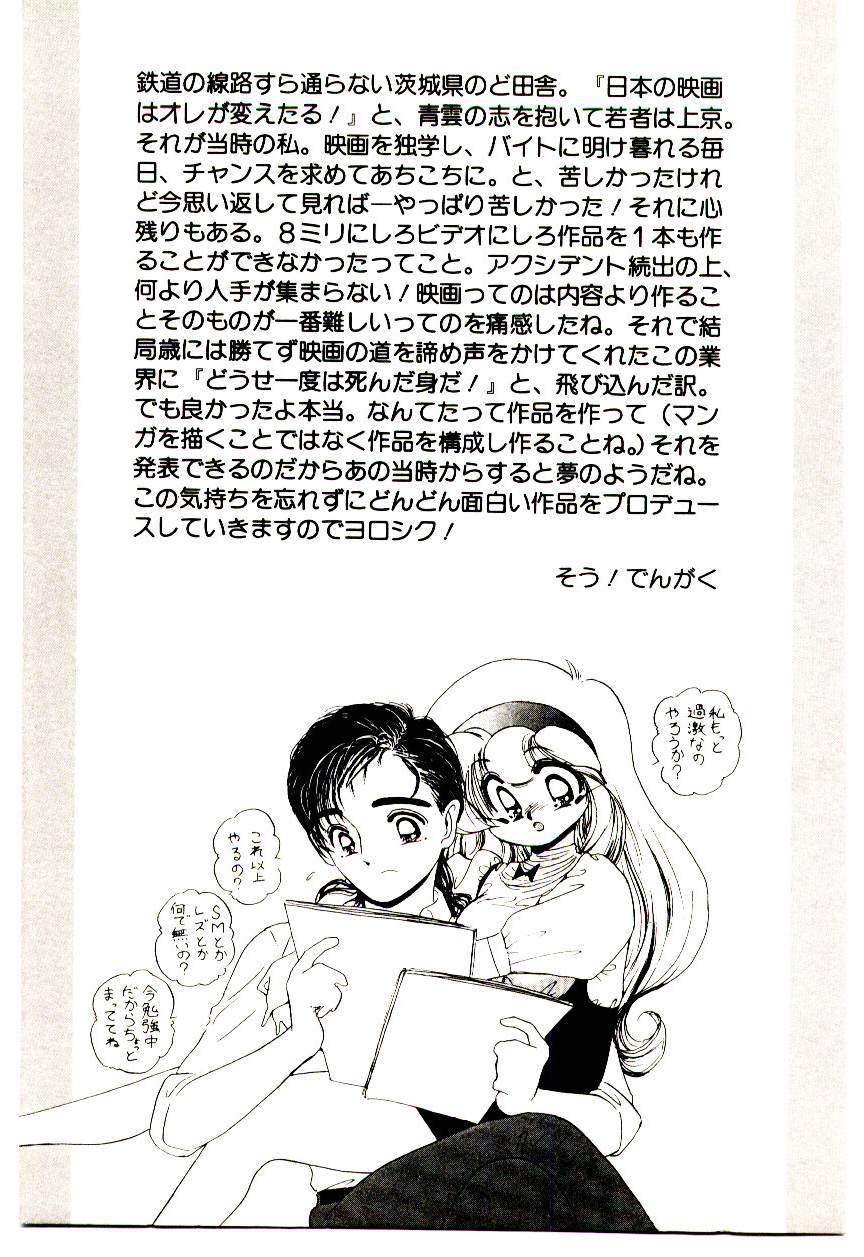 鉄道の線路すら通らない茨城県のど田舎。『日本の映画
はオレが変えたる！』と、青雲の志を抱いて若者は上京。
それが当時の私。映画を独学し、バイトに明け暮れる毎
日、チャンスを求めてあちこちに。と、苦しかったけれ
ど今思い返して見れば—やっぱり苦しかった！それに心
残りもある。８ミリにしろビデオにしろ作品を１本も作
ることができなかったってこと。アクシデント続出の上、
何より人手が集まらない！映画ってのは内容より作るこ
とそのものが一番難しいってのを痛感したね。それで結
局歳には勝てず映画の道を諦め声をかけてくれたこの業
界に『どうせ一度は死んだ身だ！』と、飛び込んだ訳。
でも良かったよ本当。なんてたって作品を作って（マン
ガを描くことではなく作品を構成し作ることね。）それを
発表できるのだからあの当時からすると夢のようだね。
この気持ちを忘れずにどんどん面白い作品をプロデュー
スしていきますのでヨロシク！
そう！でんがく
私もっと
過激なの
やろうか？
これ以上
やるの？
ＳＭとか
レズとか
何で無いの？
今勉強中
だからちょっと
まっててね